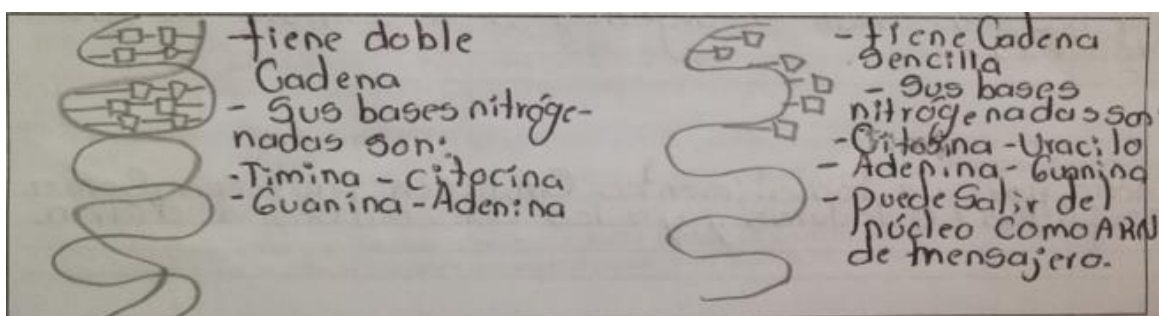 tiene doble
Cadena
- Sus bases nitróge-
nadas son:
- Timina - citocína
- Guanína - Adenina
- tiene Cadena
Sencilla
- Sus bases
nitrógenadas son
- Citosina - Uracilo
- Adenina - Guanina
- puede Salir del
núcleo Como ARN
de mensajero.